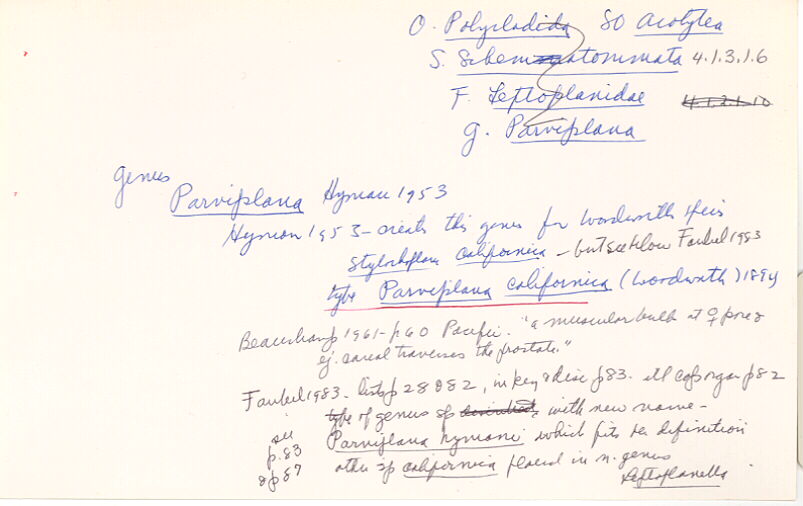 O. Polycladida SO Acotylea
S. Schematommata 4.1.3.1.6
F. Leptoplanidae 4.1.2.1.10
g. Parviplana
genus
Parviplana Hyman 1953
Hyman 1953 - creates this genus for Woodworth
Stylochoplana californica - but see below Faubel 1983
type Parviplana californica (Woodworth) 1894
Beauchamp 1961 - p60 Pacific. "a muscular bulb at ♀ pore &
ej. canal traverses the prostate."
Faubel 1983 - lists p 28 & 82, in key & disc p83. ill cop organ p 82
type of genus sp described with new name -
see
p. 83
& p 87
Parviplana hymani which fits the definition
other sp californica placed in n. genus
Leptoplanella